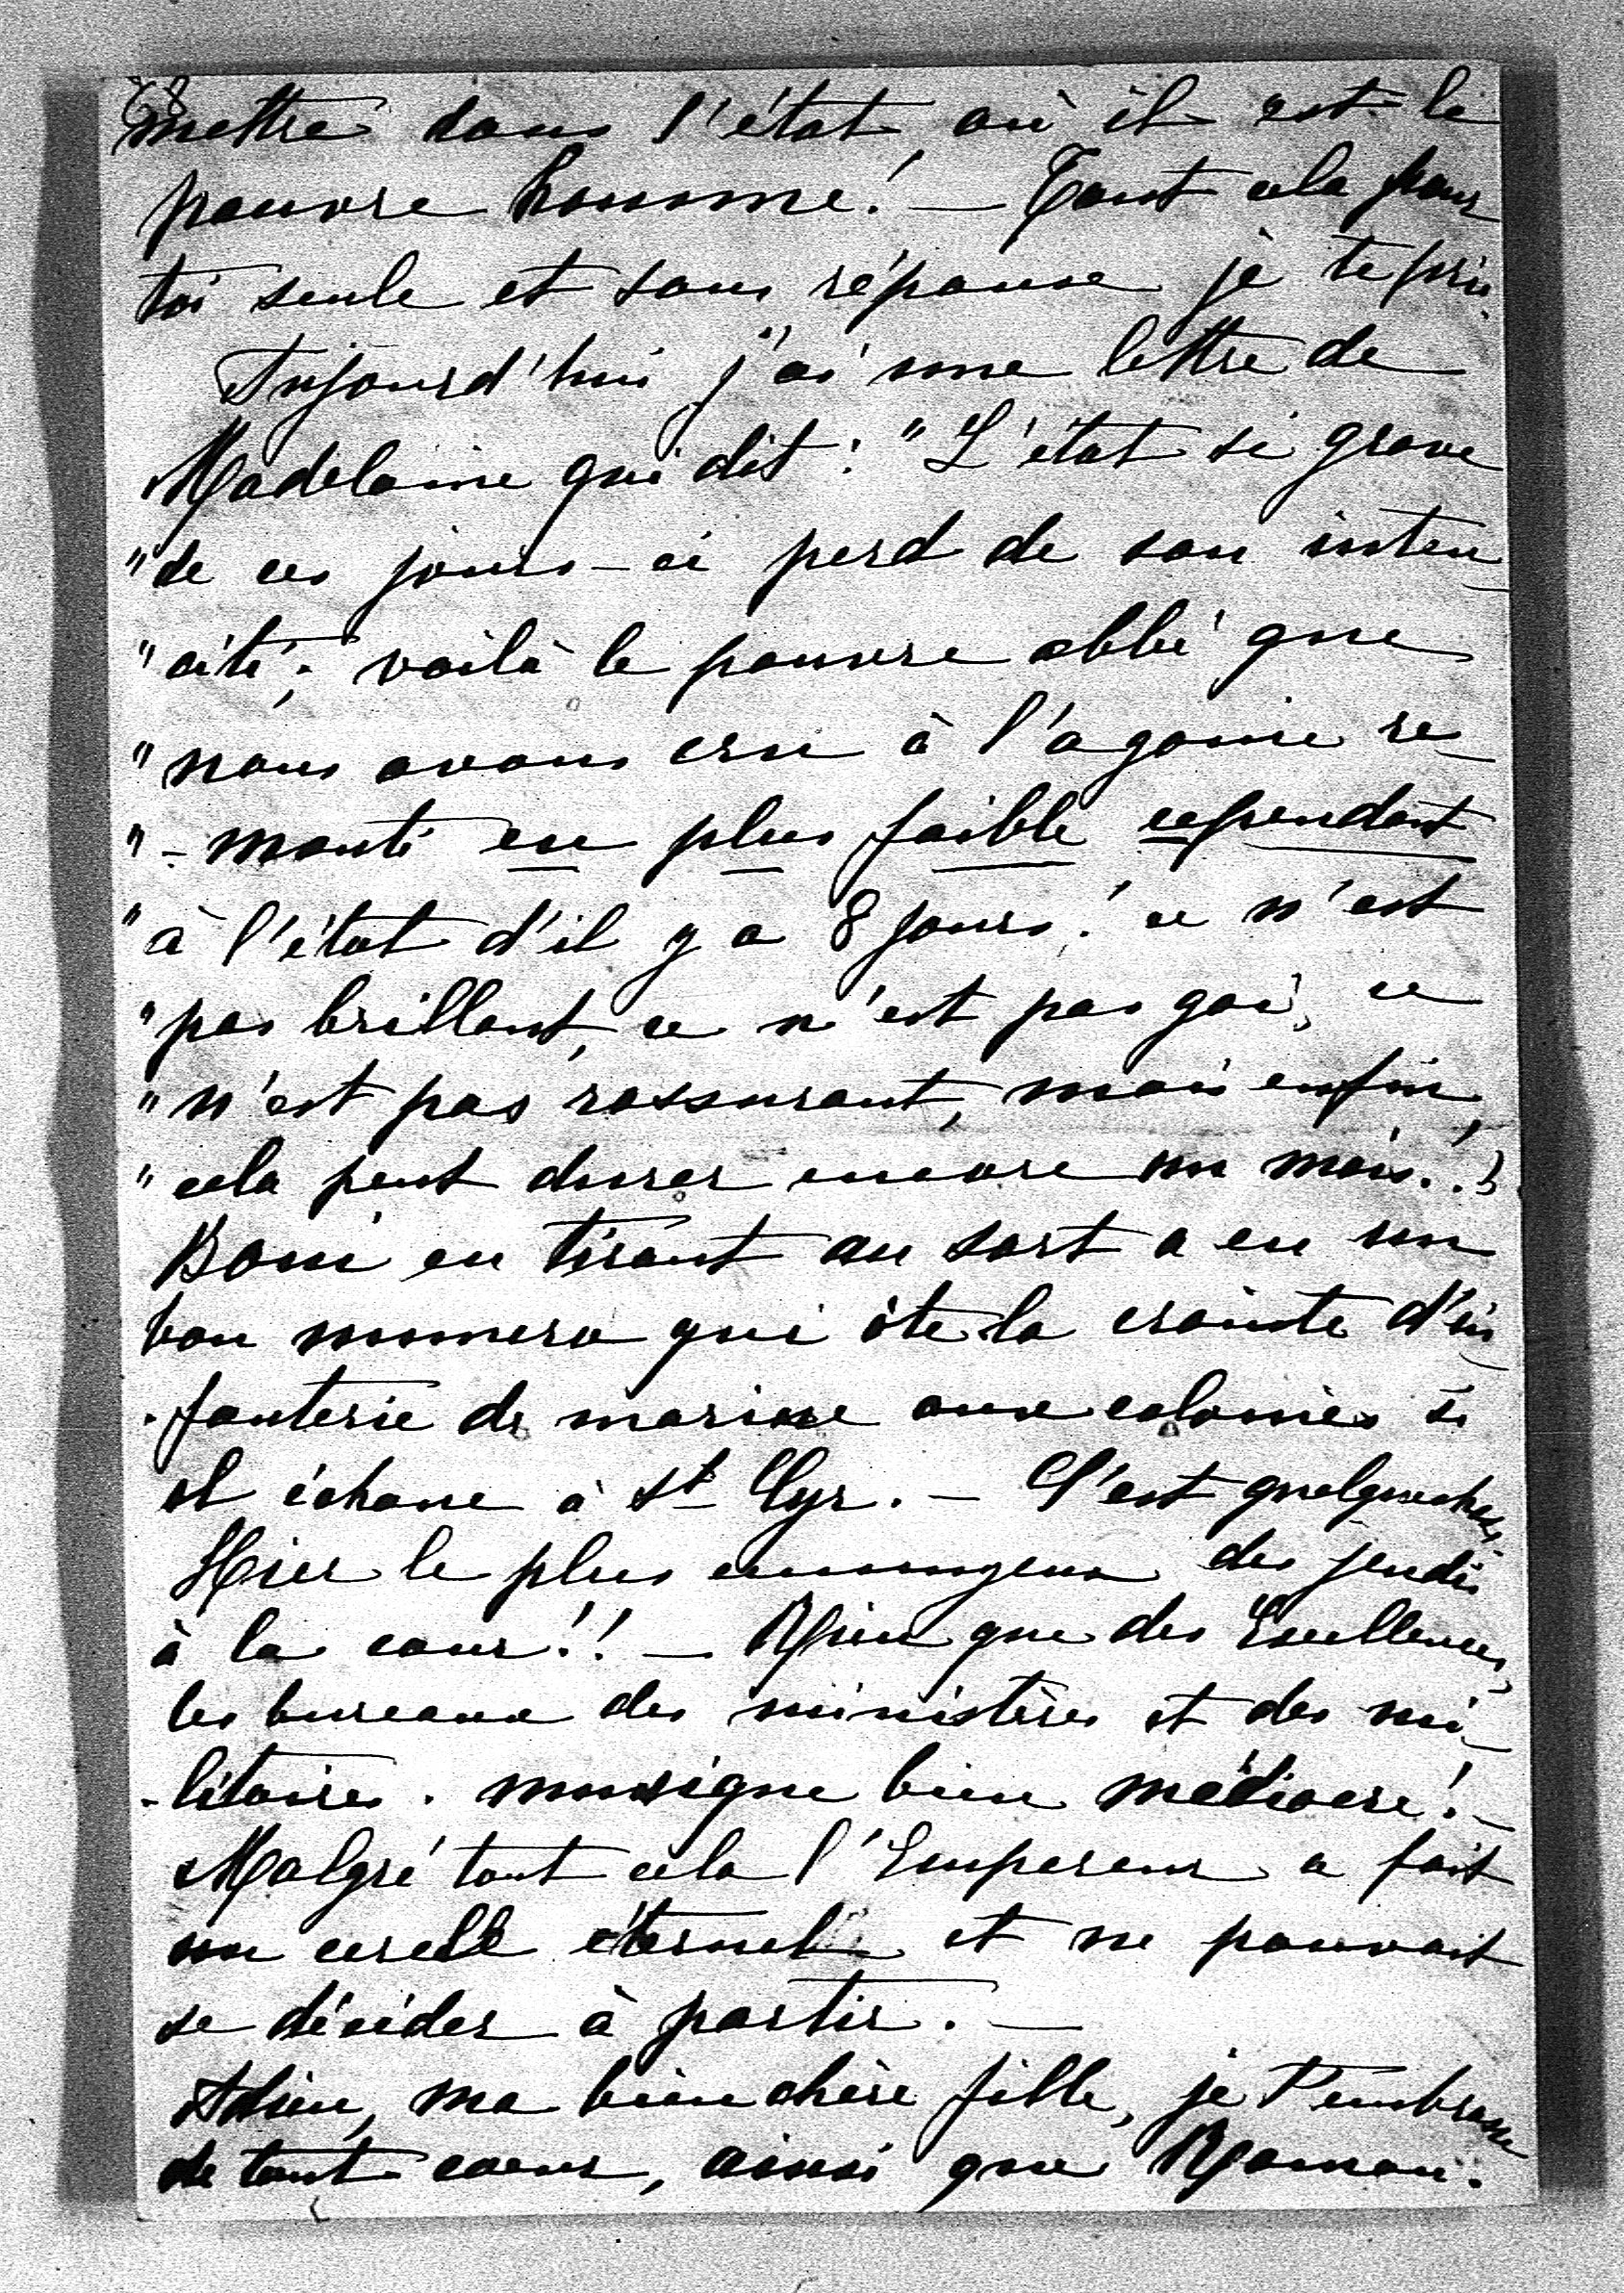 68
mettre dans l'état où il est le
pauvre homme! — Tout cela pour
toi seule et sans réponse je te prie.
Aujourd'hui j'ai une lettre de
Madelaine qui dit : "L'état si grave
"de ces jours-ci perd de son inten
"cité; voilà le pauvre abbé que
"nous avons cru à l'agonie re
"-monté en plus faible cependant
"à l'état d'il y a 8 jours! ce n'est
"pas brillant, ce n'est pas gai, ce
"n'est pas rassurant, mais enfin,
"cela peut durer encore un mois..
Boni en tirant au sort a eu un
bon numero qui ôte la crainte d'in
-fanterie de marine aux colonies si
il échoue à St Cyr. — C'est quelquechose
Hier le plus ennuyeux des jeudis
à la cour!! — Rien que des Excellences,
les bureaux des ministères et des mi
-litaires. musique bien médiocre! —
Malgré tout cela l'Empereur a fait
un cercle éternel et ne pouvait
se décider à partir. —
Adieu, ma bien chère fille, je t'embrasse
de tout coeur, ainsi que